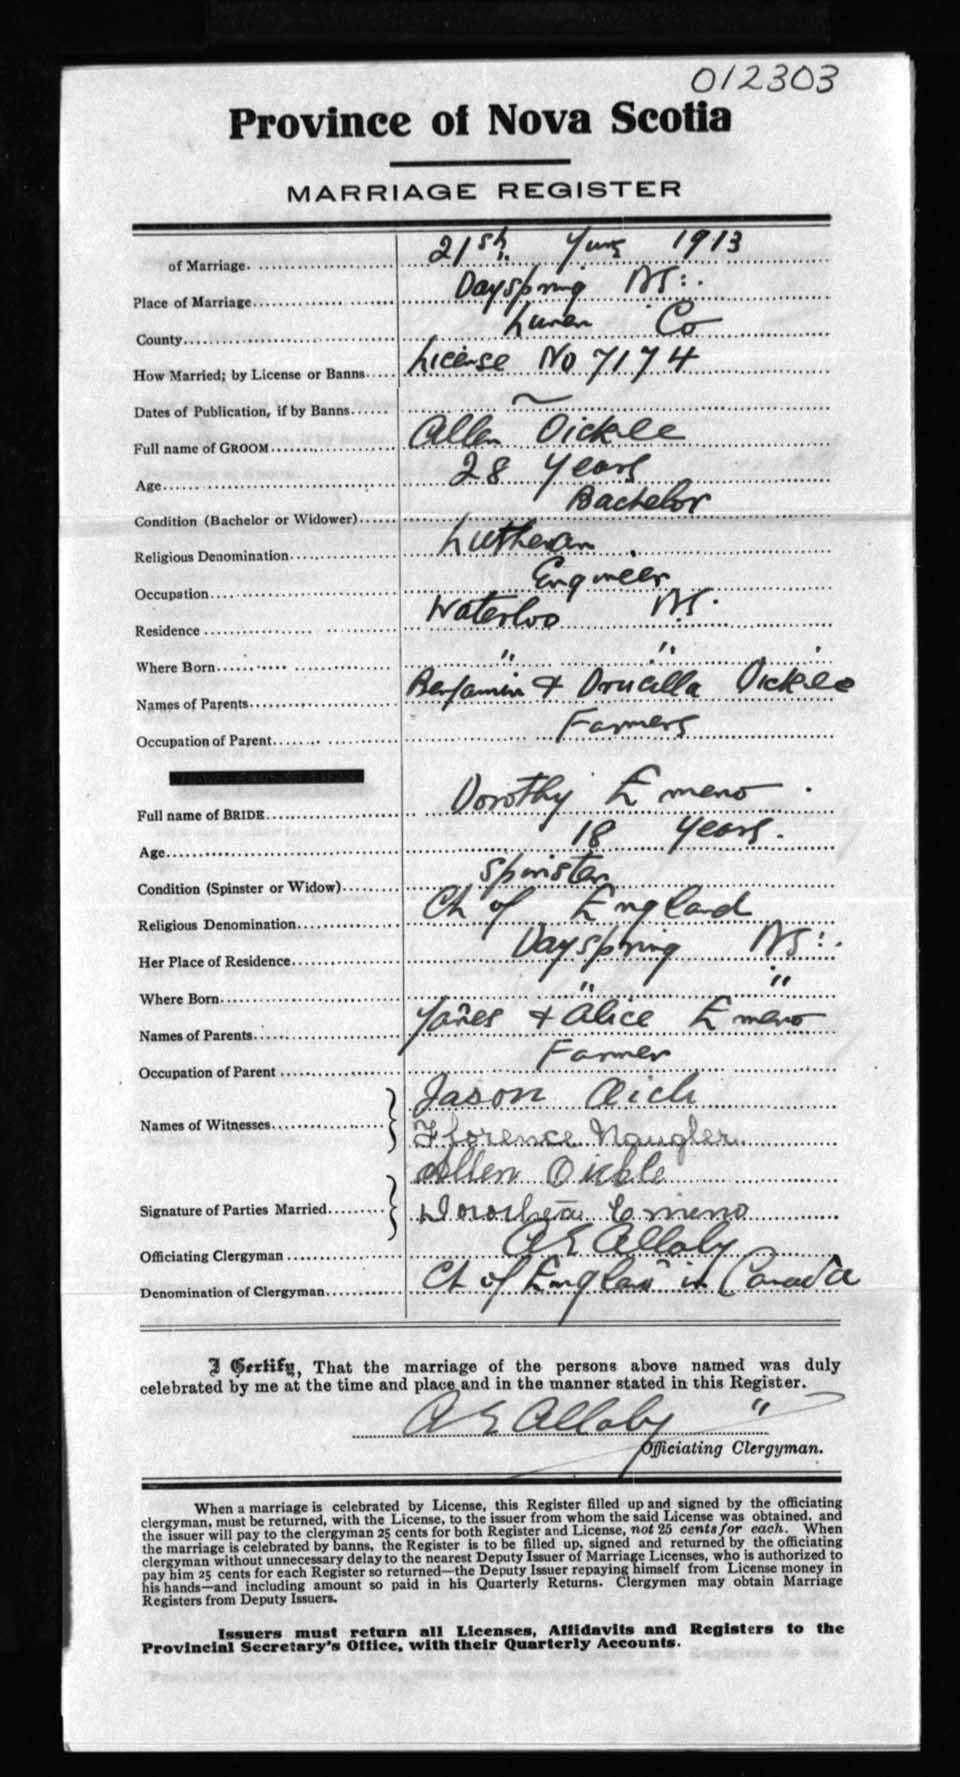 012303
Province of Nova Scotia
MARRIAGE REGISTER
of Marriage. 21st June 1913
Place of Marriage Dayspring NS.
County Lunen Co
How Married; by License or Banns License No 7174
Dates of Publication, if by Banns ~
Full name of GROOM Allen Oickle
Age 28 years
Condition (Bachelor or Widower) Bachelor
Religious Denomination Lutheran
Occupation Engineer
Residence Waterloo NS.
Where Born " "
Names of Parents Benjamin & Drucilla Oickle
Occupation of Parent Farmers
Full name of BRIDE Dorothy Emeno
Age 18 years.
Condition (Spinster or Widow) Spinster
Religious Denomination Ch of England
Her Place of Residence Dayspring NS.
Where Born " "
Names of Parents James & Alice Emeno
Occupation of Parent Farmer
Names of Witnesses Jason
Florence Naugler
Signature of Parties Married Allen Oickle
Emeno
Officiating Clergyman A E Allaby
Denomination of Clergyman Ch of England in Canada
I Certify, That the marriage of the persons above named was duly
celebrated by me at the time and place and in the manner stated in this Register.
A E Allaby "
Officiating Clergyman.
When a marriage is celebrated by License, this Register filled up and signed by the officiating
clergyman, must be returned, with the License, to the issuer from whom the said License was obtained, and
the issuer will pay to the clergyman 25 cents for both Register and License, not 25 cents for each. When
the marriage is celebrated by banns, the Register is to be filled up, signed and returned by the officiating
clergyman without unnecessary delay to the nearest Deputy Issuer of Marriage Licenses, who is authorized to
pay him 25 cents for each Register so returned—the Deputy Issuer repaying himself from License money in
his hands—and including amount so paid in his Quarterly Returns. Clergymen may obtain Marriage
Registers from Deputy Issuers.
Issuers must return all Licenses, Affidavits and Registers to the
Provincial Secretary's Office, with their Quarterly Accounts.